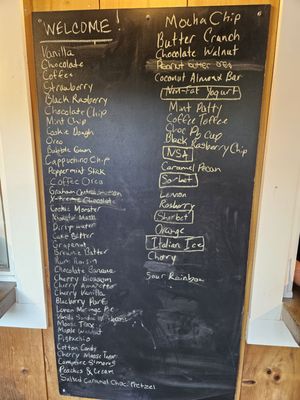 "WELCOME!"
Vanilla
Chocolate
Coffee
Strawberry
Black Raspberry
Chocolate Chip
Mint Chip
Cookie Dough
Oreo
Bubble Gum
Cappuchino Chip
Peppermint Stick
Coffee Oreo
Graham
X-treme Chocolate
Cookie Monster
Dirty water
Cake Batter
Grapenut
Brownie Batter
Rum Raisin
Chocolate Banana
Cherry
Cherry Amaretto
Cherry Vanilla
Blueberry Pie
Lemon Meringue Pie
Vanilla
Moose Trax
Maple Walnut
Pistachio
Cotton Candy
Cherry Moose Trax
Campfire S'mores
Peaches & Cream
Salted Caramel Choc. Pretzel
Mocha Chip
Butter Crunch
Chocolate Walnut
Peanut Butter Oreo
Coconut Almond Bar
Non-Fat Yogurt
Mint Patty
Coffee Toffee
Choc PB Cup
Black Raspberry Chip
NSA
Caramel Pecan
Sorbet
Lemon
Rasberry
Sherbet
Orange
Italian Ice
Cherry
Sour Rainbow